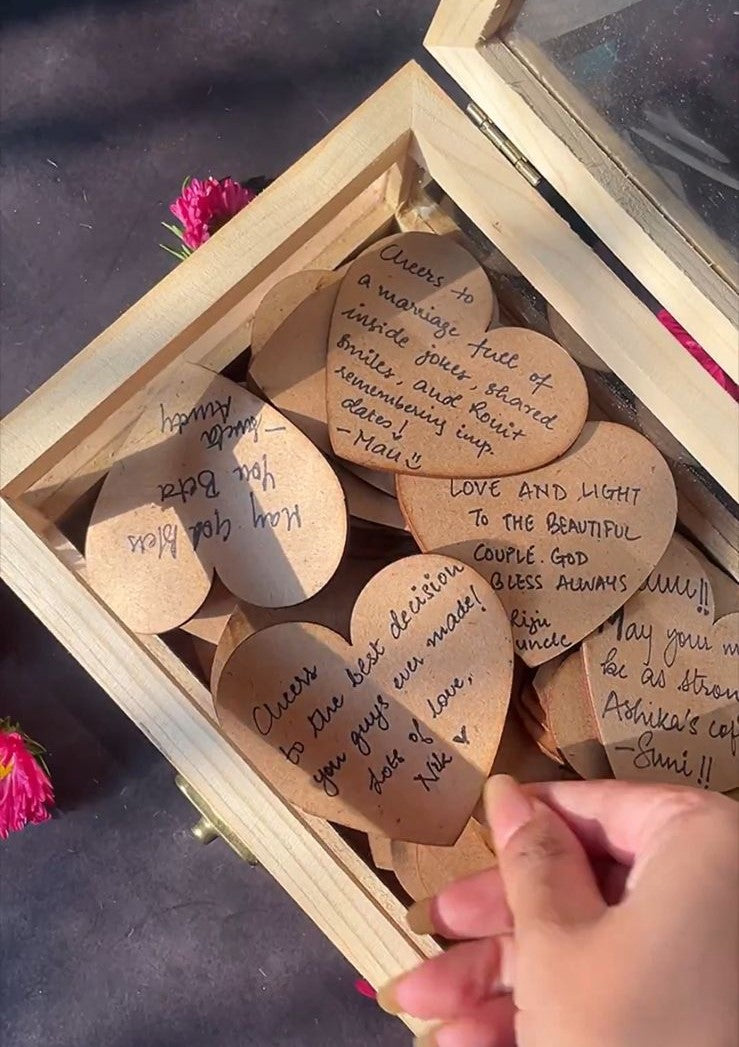 Cheers to
a marriage full of
inside jokes, shared
smiles, and Ronit
remembering imp.
dates!
- Mau
LOVE AND LIGHT
TO THE BEAUTIFUL
COUPLE. GOD
BLESS ALWAYS
Riju
uncle
May God Bless
You Beta
Aunty
Cheers
to the best decision
you guys ever made!
Lots of love,
Nik
May your
be as
Ashika's
- Suni!!